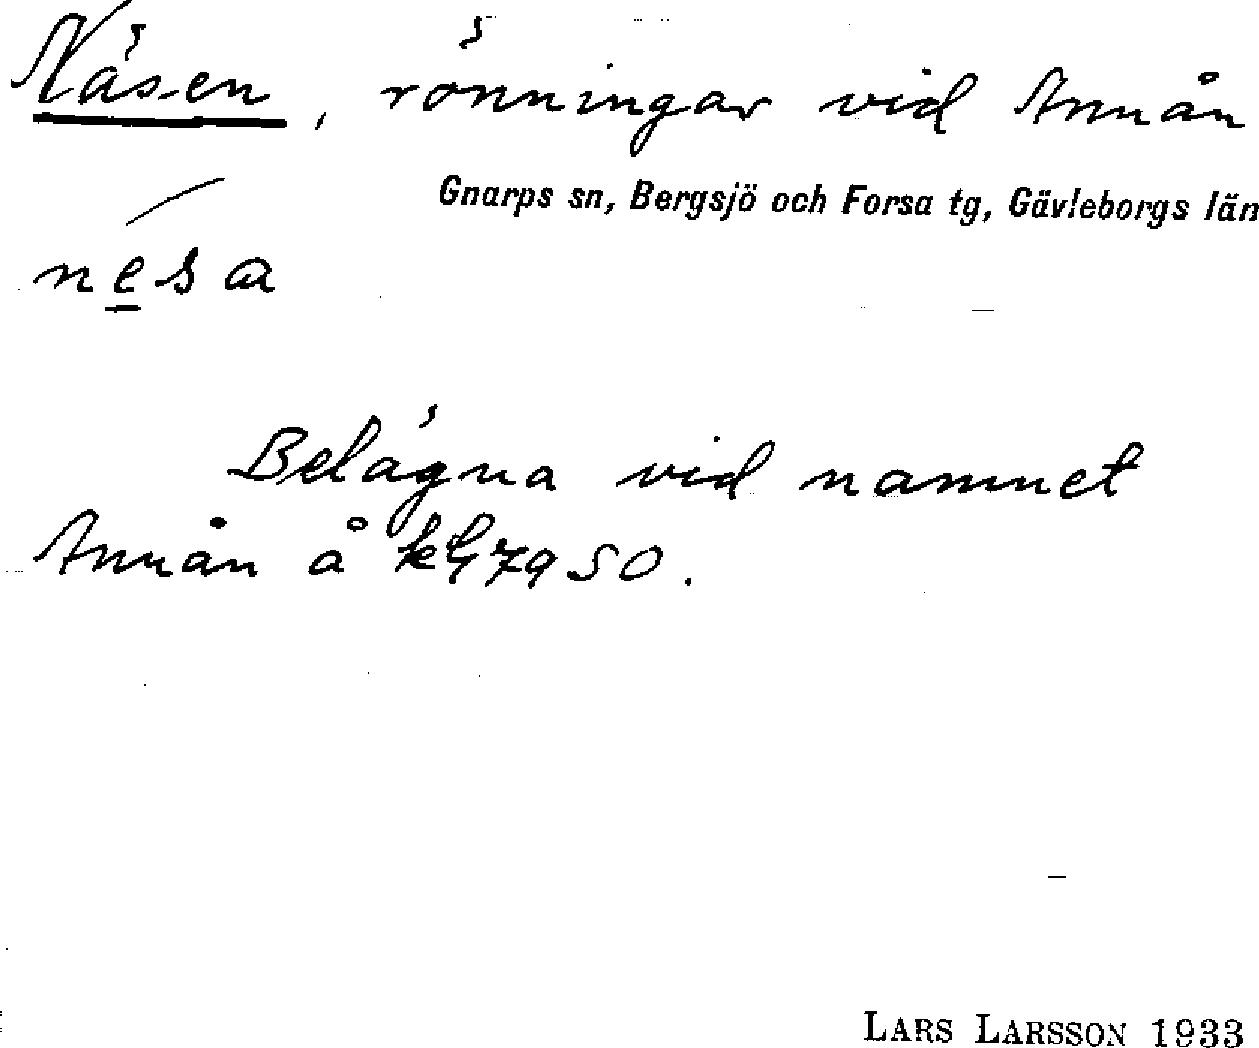 Näsen, rönningar vid Annån
Gnarps sn, Bergsjö och Forsa tg, Gävleborgs län
nesa
Belägna vid namnet
Annån å
LARS LARSSON 1933